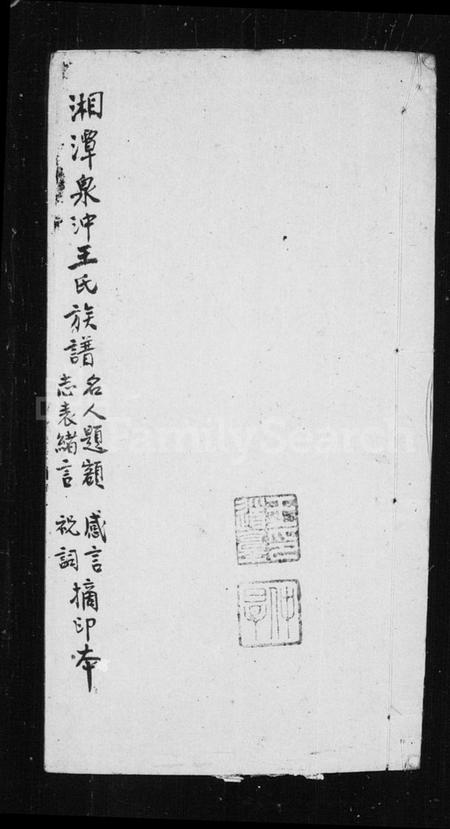 湘潭泉冲王氏族譜
名人題額 感言
志表緒言 祝詞
摘印本
FamilySearch